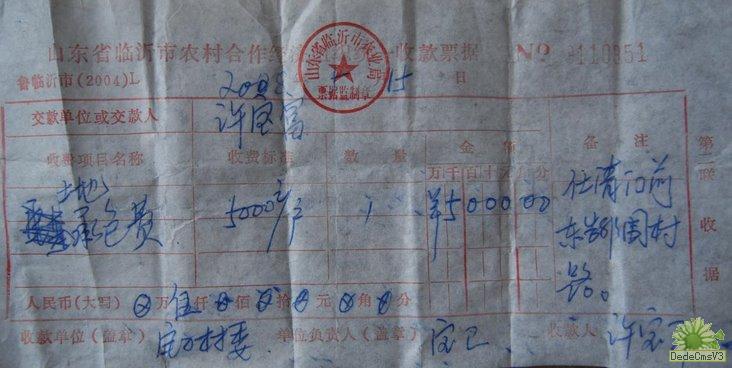 山东省临沂市农村合作经济 收款票据 No 110351
山东省临沂市农业局
票据监制章
鲁临沂市(2004)L 2008 15 日
交款单位或交款人 许宝富
收费项目名称 收费标准 数量 金额 备注
万千百十元角分
土地
承包费 5000元/户 1 ¥500000 住清河前
东 邻围村
路。
第二联收据
人民币(大写) 0万伍仟0佰0拾0元0角0分
收款单位(盖章) 村委 单位负责人(盖章) 收款人 许宝
DedeCmsV3